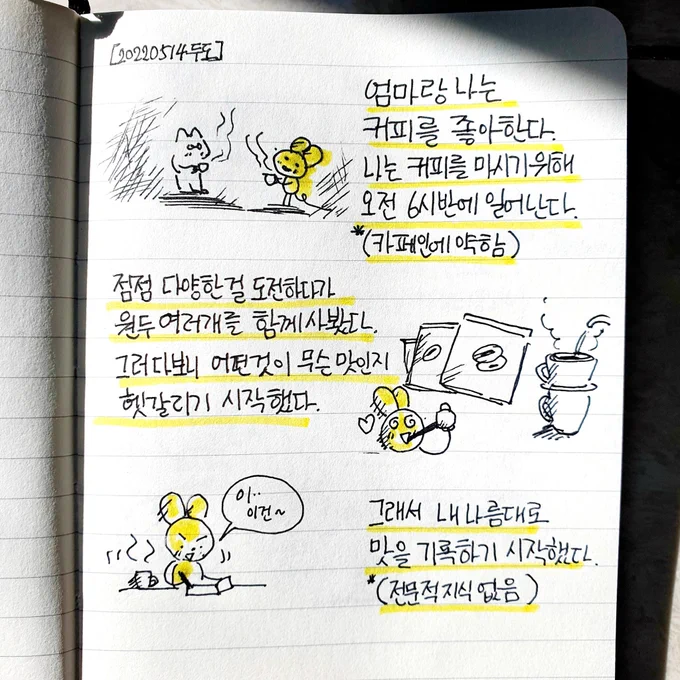 [20220514두도]
엄마랑 나는
커피를 좋아한다.
나는 커피를 마시기위해
오전 6시반에 일어난다.
*(카페인에 약함)
점점 다양한걸 도전하다가
원두 여러개를 함께사봤다.
그러다보니 어떤것이 무슨 맛인지
헷갈리기 시작했다.
이..
이건~
그래서 내나름대로
맛을 기록하기 시작했다.
*(전문적지식 없음)